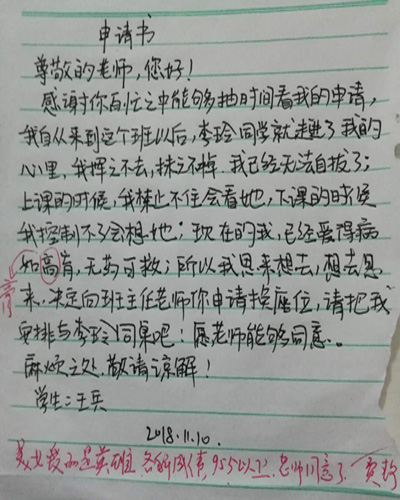 申请书
尊敬的老师，您好！
感谢你百忙之中能够抽时间看我的申请，
我自从来到这个班以后，李玲同学就走进了我的
心里，我挥之不去，抹之不掉，我已经无法自拔了；
上课的时候，我禁止不住会看她，下课的时侯
我控制不了会想她；现在的我，已经爱得病
如高肓，无药可救；所以我思来想去，想去思
来，决定向班主任老师你申请换座位，请把我
安排与李玲同桌吧！愿老师能够同意。
麻烦之处，敬请谅解！
学生：王兵
2018.11.10.
膏
美女爱的是英雄 各科成绩95分以上 老师同意了